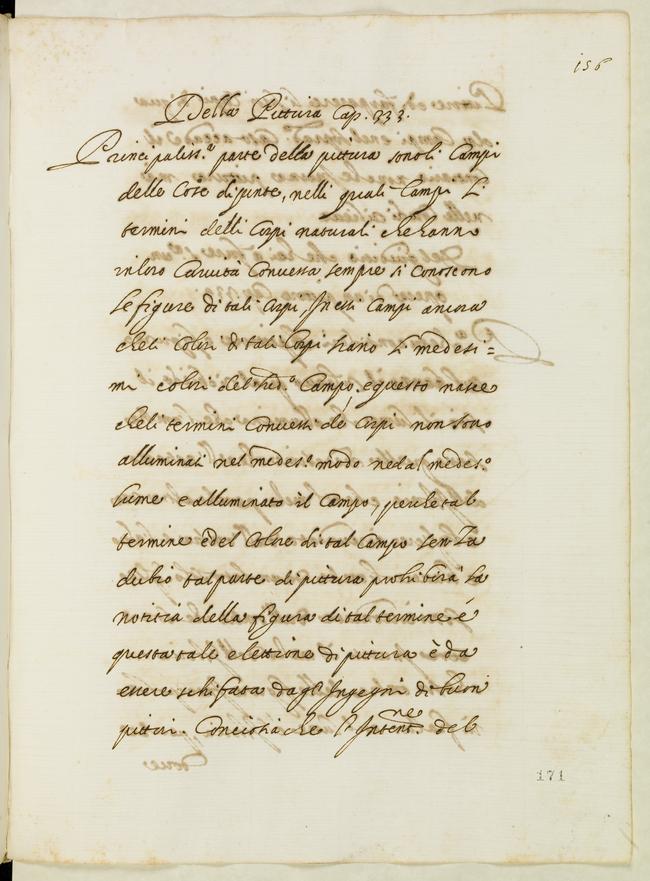 156
Della Pittura Cap. 333.
Principaliss.ª parte della pittura sono li Campi
delle Cose dipinte, nelli quali Campi li
termini delli Corpi naturali che hanno
in loro Curvità Convessa sempre si Conoscono
le figure di tali Corpi, In essi Campi ancora
che li Colori di tali Corpi siano li medesi=
mi colori del sud.º Campo, e questo nasce
che li termini Convessi de Corpi non sono
alluminati nel medes.º modo ne dal medes.º
lume e alluminato il Campo, perche tal
termine è del Colore di tal Campo senza
dubio tal parte di pittura prohibirà la
notitia della figura di tal termine, é
questa tale elettione di pittura è da
essere schifata da gl' Ingegni di buon
pittori. Conciosia che l' Intent.ne del
171